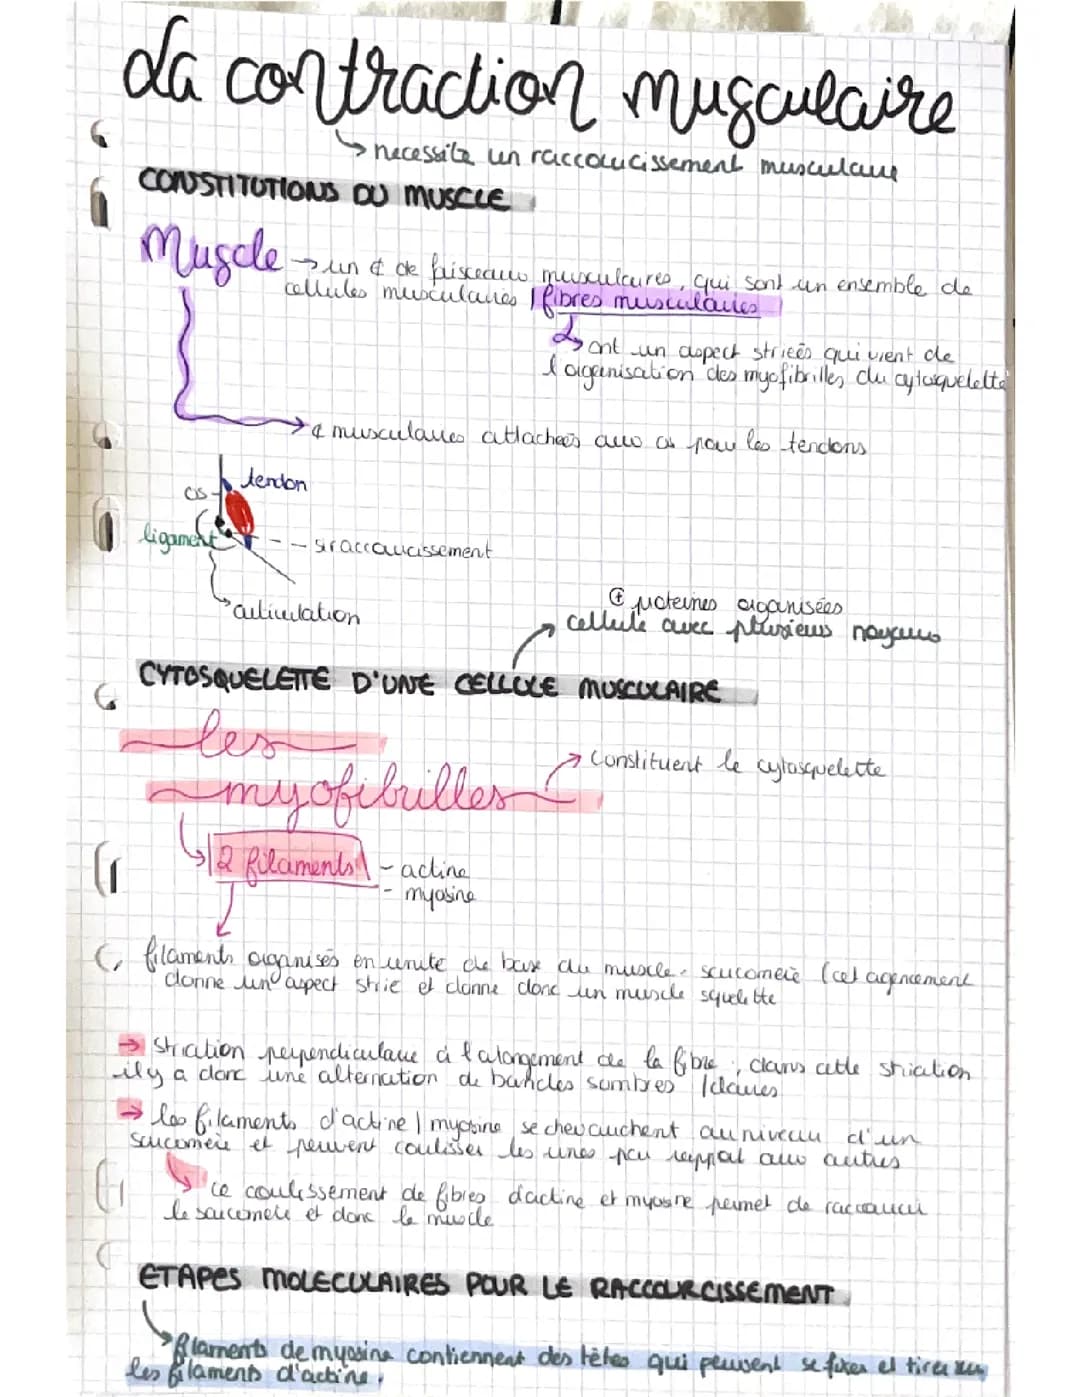 La contraction musculaire
↳ necessite un raccourcissement musculaire
CONSTITUTIONS DU MUSCLE
Muscle → un ¢ de faisceaux musculaires, qui sont un ensemble de
cellules musculaires / fibres musculaires
↳ ont un aspect striées qui vient de
l'organisation des myofibrilles du cytosquelette
→ ¢ musculaires attachées aux os par les tendons
tendon
os
ligament
si raccourcissement
articulation
⊕ proteines organisées
cellule avec plusieurs noyaux
CYTOSQUELETTE D'UNE CELLULE MUSCULAIRE
les
myofibrilles
→ Constituent le cytosquelette
↳ 2 filaments - actine
- myosine
filaments organisés en unité de base du muscle. sarcomère (cet agencement
donne un aspect strié et donne donc un muscle squelette
→ Striation perpendiculaire à l'alongement de la fibre ; dans cette striation
il y a donc une alternation de bandes sombres / claires
→ les filaments d'actine / myosine se chevauchent au niveau d'un
sarcomère et peuvent coulisser les unes par rapport aux autres
↳ ce coulissement de fibres d'actine et myosine permet de raccourcir
le sarcomère et donc le muscle
ETAPES MOLECULAIRES POUR LE RACCOURCISSEMENT
↳ filaments de myosine contiennent des têtes qui peuvent se fixer et tirer sur
les filaments d'actine.